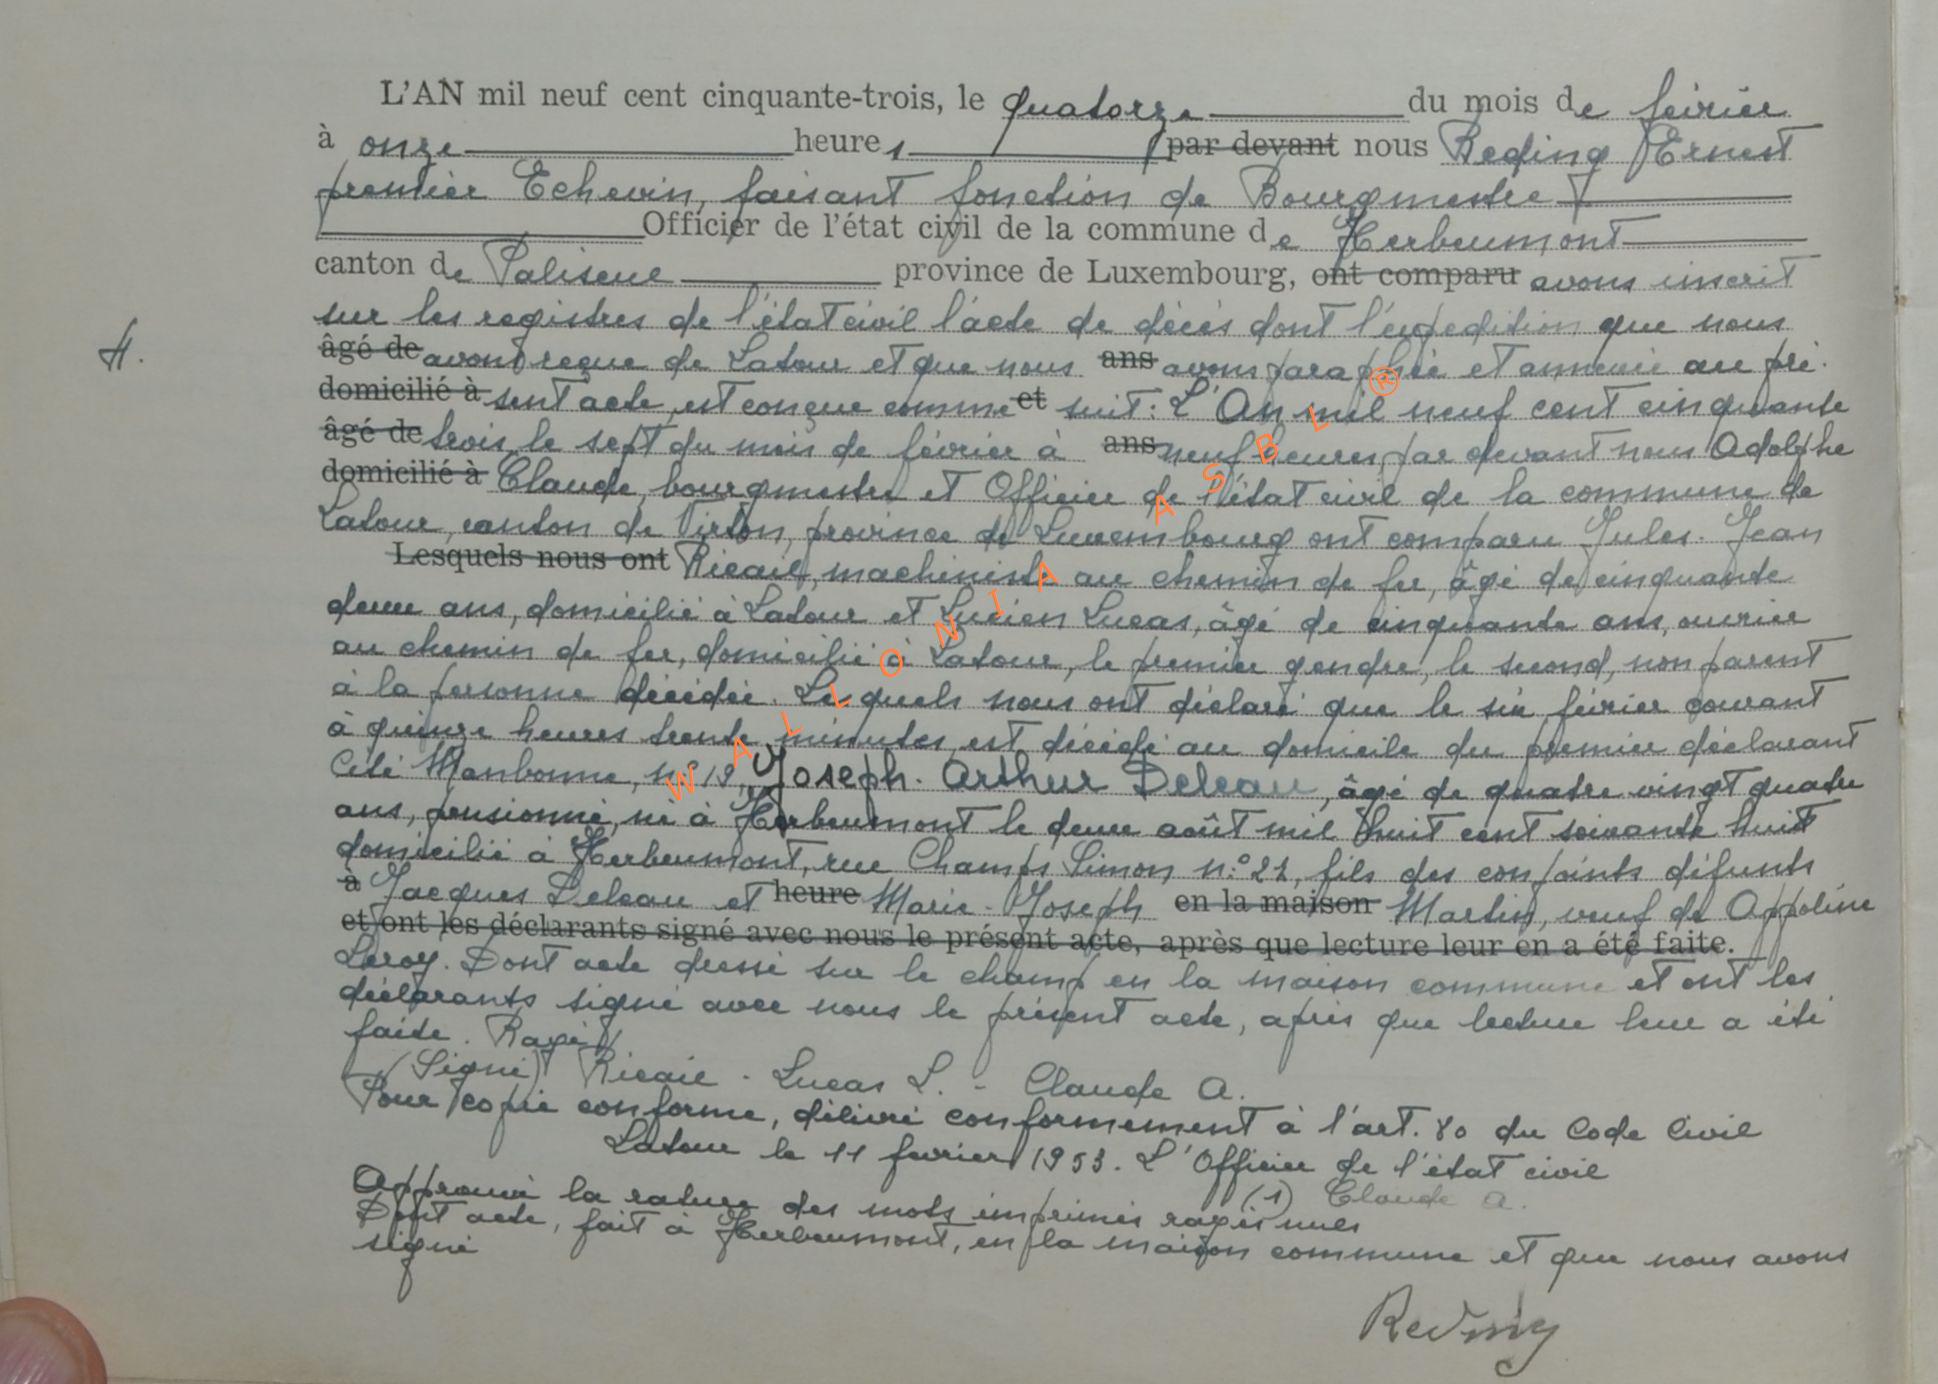 L'AN mil neuf cent cinquante-trois, le quatorze du mois de février
à onze heures par devant nous Reding Ernest
premier Echevin, faisant fonction de Bourgmestre
Officier de l'état civil de la commune de Herbeumont
canton de Paliseul province de Luxembourg, ont comparu avons inscrit
sur les registres de l'état civil l'acte de décès dont l'expédition que nous
4.
âgé de avons reçue de Latour et que nous ans avons paraphée et annexée au pré-
domicilié à sent acte, est conçue comme et suit: L'An mil neuf cent cinquante
âgé de trois, le sept du mois de février à ans neuf heures par devant nous Adolphe
domicilié à Claude, bourgmestre et Officier de l'état civil de la commune de
Latour, canton de Virton, province de Luxembourg ont comparu Jules-Jean
Lesquels nous ont Ricail, machiniste au chemin de fer, âgé de cinquante
deux ans, domicilié à Latour et Lucien Lucas, âgé de cinquante ans, ouvrier
au chemin de fer, domicilié à Latour, le premier gendre, le second, non parent
à la personne décédée. Lesquels nous ont déclaré que le six février courant
à quinze heures trente minutes, est décédé au domicile du premier déclarant
Cité Manbonne, n° 19, Joseph-Arthur Deleau, âgé de quatre vingt quatre
ans, pensionné, né à Herbeumont le deux août mil huit cent soixante huit
domicilié à Herbeumont, rue Champs Simon n° 22, fils des conjoints défunts
à Jacques Deleau et heure Marie-Joseph en la maison Martin, veuf de Appoline
et ont les déclarants signé avec nous le présent acte, après que lecture leur en a été faite.
Leroy. Dont acte dressé sur le champ en la maison commune et ont les
déclarants signé avec nous le présent acte, après que lecture leur a été
faite.
(Signé) Ricail - Lucas L. - Claude A.
Pour copie conforme, délivré conformement à l'art. 80 du Code Civil
Latour le 11 fevrier 1953. L'Officier de l'état civil
(1) Claude A.
Approuvé la rature des mots imprimés rayés nuls
Dont acte, fait à Herbeumont, en la maison commune et que nous avons
signé
Reding
WALLONIA ASBL ®